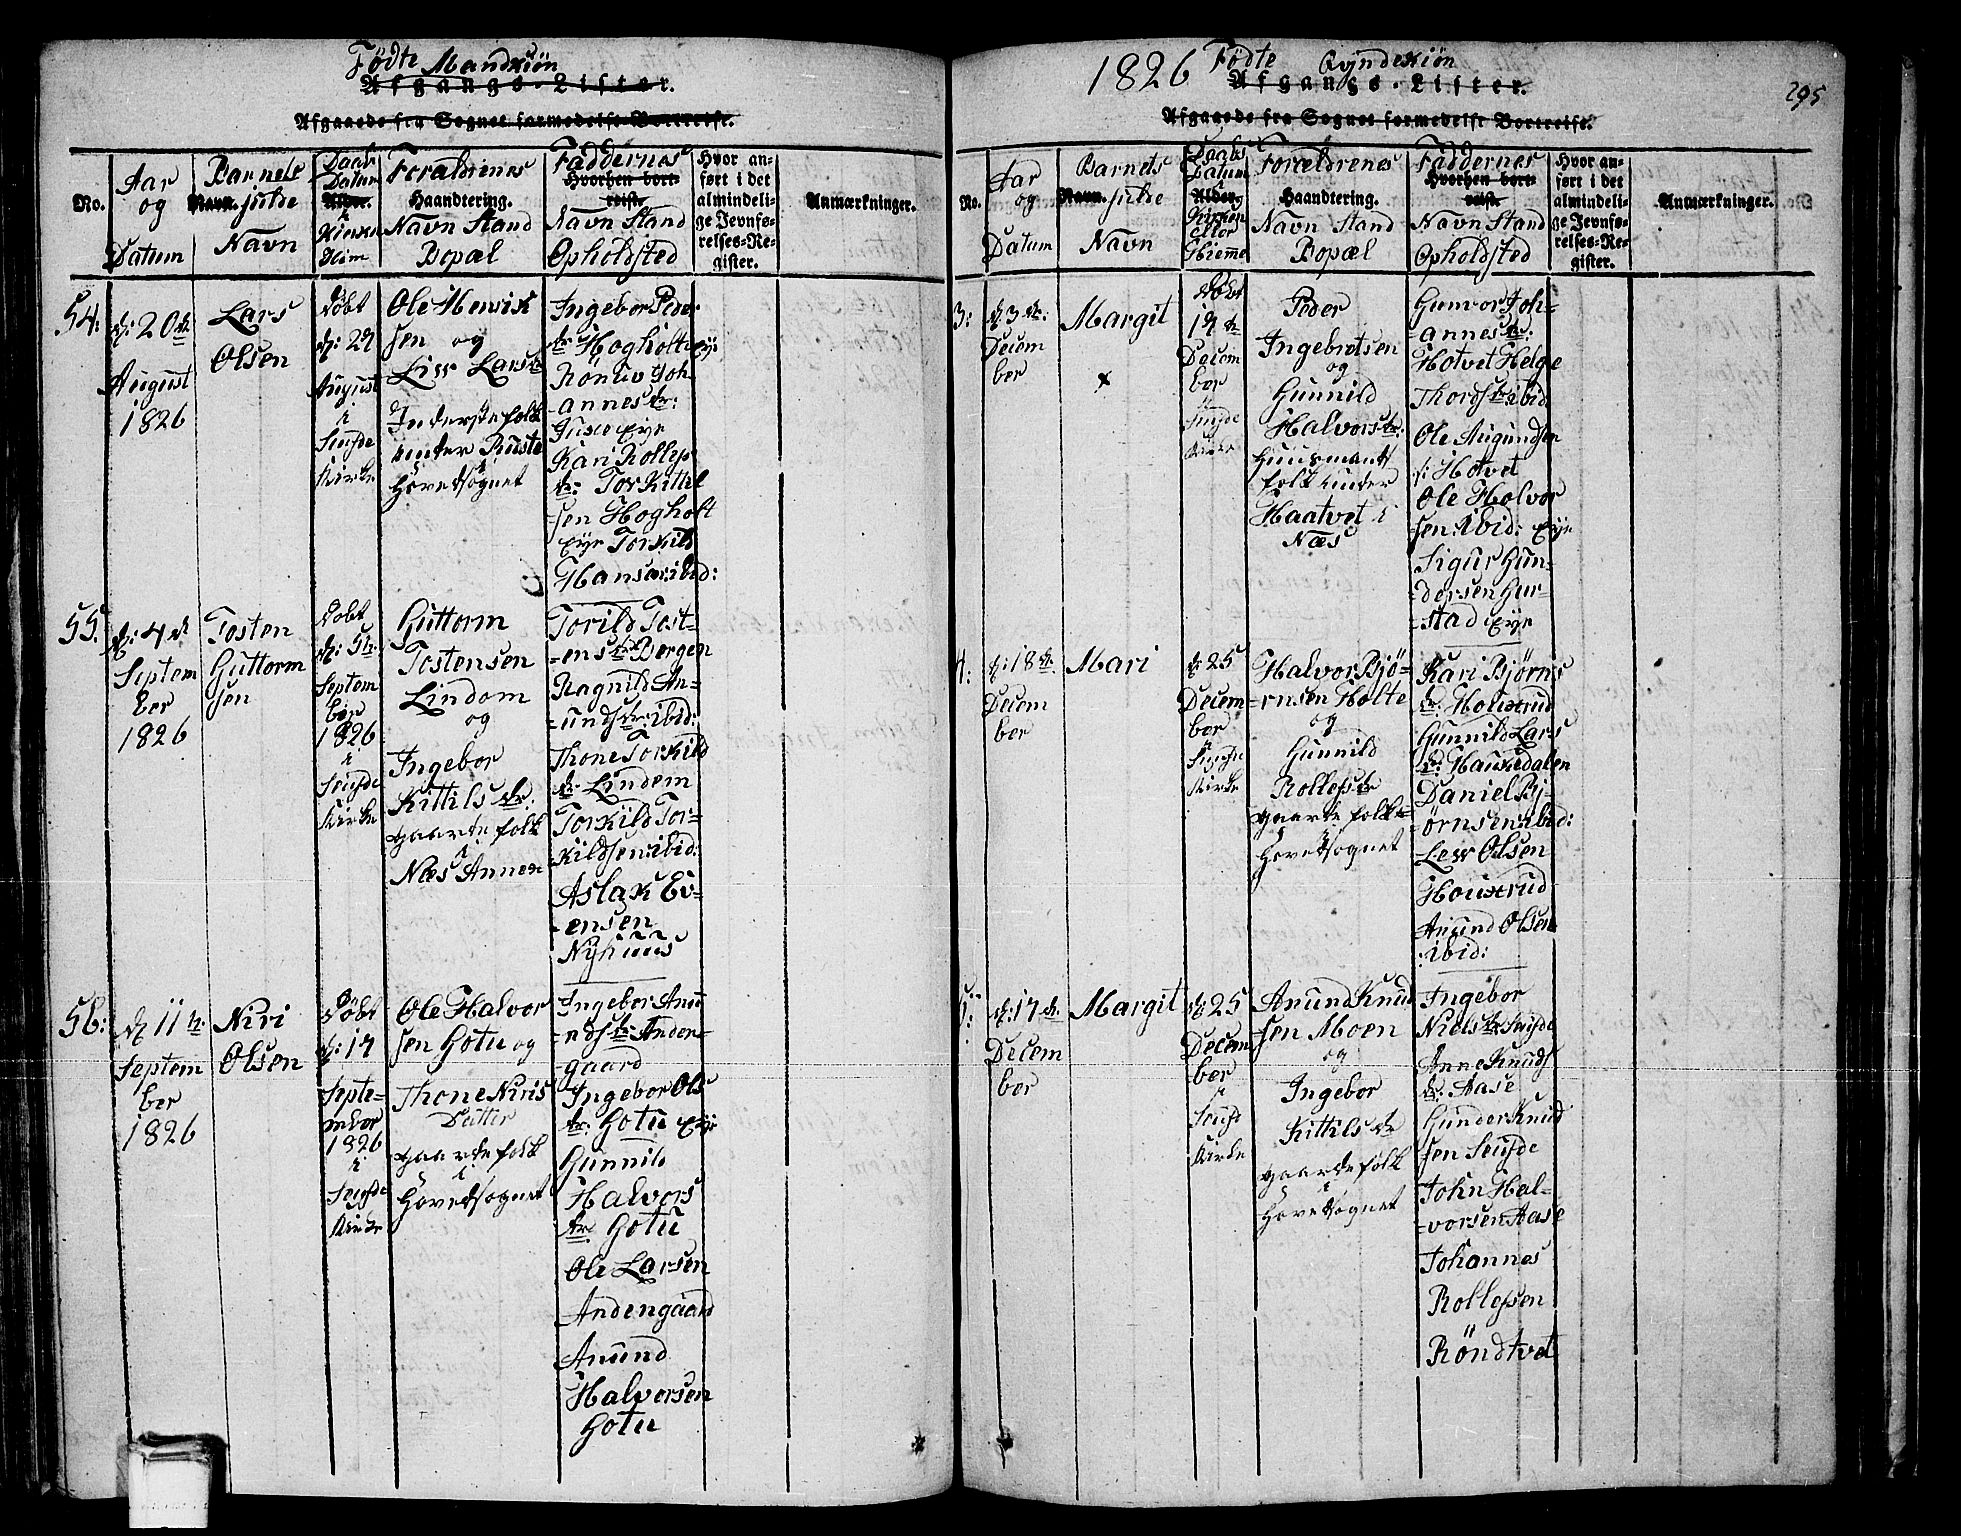 Födte Mandkiön
Afgangs-Lister.
Afgaaede fra Sognet formedelst Bortreise.
No.
Aar
og
Datum
Barnets
Navn. fulde
Navn
Daabs
Datum
Alder.
i
Kirken
Foræeldrenes
Haandtering.
Navn Stand
Bopæl
Faddernes
Hvorhen bort-
reist.
Navn Stand
Opholdsted
Hvor an-
ført i det
almindeli-
ge Jevnfø-
relses-Re-
gister.
Anmærkninger.
54:
d: 20de
August
1826
Lars
Olsen
döbt
d: 27
August
i
Kirke
Ole Henrik
sen og
Liw Larsdr
Inderstefolk
under Ruste
i
Hovedsognet
Ingebor Peder
dr: Hogholt eje
Rönuv Joh-
annesdr:
eje
Kari Rolless
dr: Torkittel
sen Hogholt
eje Torkild
Hansen ibid:
55.
d: 4de
Septem
ber
1826
Tosten
Guttorm
sen
döbt
d: 5te
Septem
ber
1826
i
Kirke
Guttorm
Tostensen
Lindom
og
Ingebor
Kittilsdr:
gaardefolk
i
Næs Annex
Torild Tost-
ensdr Bergen
Ragnild An-
undsdr: ibid:
Thone Torkild
dr: Lindem
Torkild Tor-
kildsen ibid:
Aslak Ev-
ensen
Nyhuus
56:
d 11te:
Septem
ber
1826
Niri
Olsen
döbt
d: 17
Septe-
mber
1826
i
Kirke
Ole Halvor
sen Gotu og
Thone Niris
Datter
gaardefolk
i
Hovedsognet
Ingebor Anu
ndsdr: Anden-
gaard
Ingebor Ols
dr: Gotu eje
Gunnild
Halvors
dr: Gotu
Ole Larsen
Andengaard
Anund
Halvorsen
Gotu
1826 Födte Qvindekiön
295
Afgangs-Lister.
Afgaaede fra Sognet formedelst Bortreise.
No.
Aar
og
Datum
Barnets
Navn. fulde
Navn
Daabs
Datum
Alder.
Kirken
eller
Hiemme
Forældrenes
Haandtering.
Navn Stand
Bopæl
Faddernes
Hvorhen bort-
reist.
Navn Stand
Opholdsted
Hvor an-
ført i det
almindeli-
ge Jevnfø-
relses-Re-
gister.
Anmærkninger.
3:
d 3de:
Decem
ber
Margit
x
döbt
17de
Decem
ber
i
Kirke
Peder
Ingebretsen
og
Gunnild
Halvorsdr:
Huusmands
folk under
Haatvet i
Næs
Gunvor Joh-
annesdr:
Hotvet Helge
Thordsdr ibid
Ole Augundsen
Hotvet
Ole Holvor
sen: ibid: eje
Sigur Gun-
dersen Gur-
stad eje
4:
d: 18de.
Decem
ber
Mari
d: 25
Decem
ber
i
Kirke
Halvor Bjö-
rnsen Holte
og
Gunnild
Rollessdr
gaardefolk
i
Hovedsognet
Kari Björns
dr: Houxrud
Gunnild Lars
dr: Hauxedalen
Daniel Bj-
örnsen: ibid:
Lew Olsen
Houxrud
Anund Olsen
ibid:
5:
d: 17de.
Decem
ber
Margit
d: 25
Decem
ber
i
Kirke
Anund Knud
sen Moen
og
Ingebor
Kittilsdr
gaardefolk
i
Hovedsognet
Ingebor
Nielsdr
Anne Knuds
dr: Aase
Gunder Knud
sen
John Hal-
vorsen Aase
Johannes
Rollessen
Röndtvet